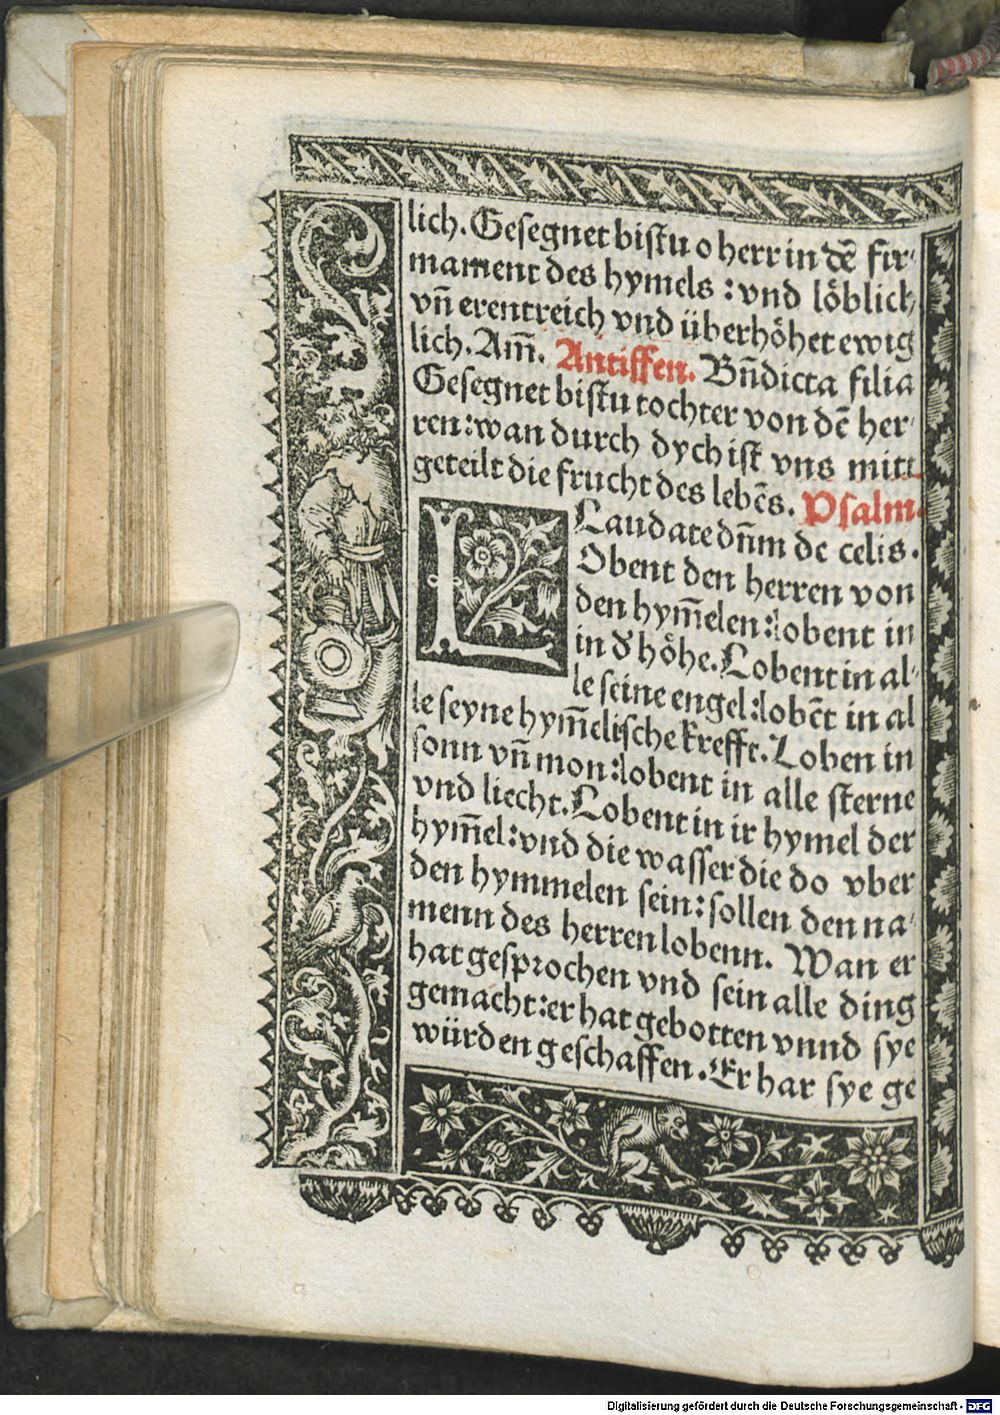 lich. Gesegnet bistu o herr in dē fir⸗
mament des hymels : vnd löblich,
vn̄ erentreich vnd überhöhet ewig
lich. Am̄. Antiffen. Bn̄dicta filia
Gesegnet bistu tochter von dē her⸗
ren: wan durch dych ist vns mitt
geteilt die frucht des lebēs. Psalm.
Laudate dn̄m de celis.
LObent den herren von
den hym̄elen: lobent in
in d' höhe. Lobent in al⸗
le seine engel: lobēt in al
le seyne hym̄elische krefft. Loben in
sonn vn̄ mon: lobent in alle sterne
vnd liecht. Lobent in ir hymel der
hym̄el: vnd die wasser die do vber
den hymmelen sein: sollen den na⸗
menn des herren lobenn. Wan er
hat gesprochen vnd sein alle ding
gemacht: er hat gebotten vnnd sye
würden geschaffen. Er hat sye ge
Digitalisierung gefördert durch die Deutsche Forschungsgemeinschaft - DFG